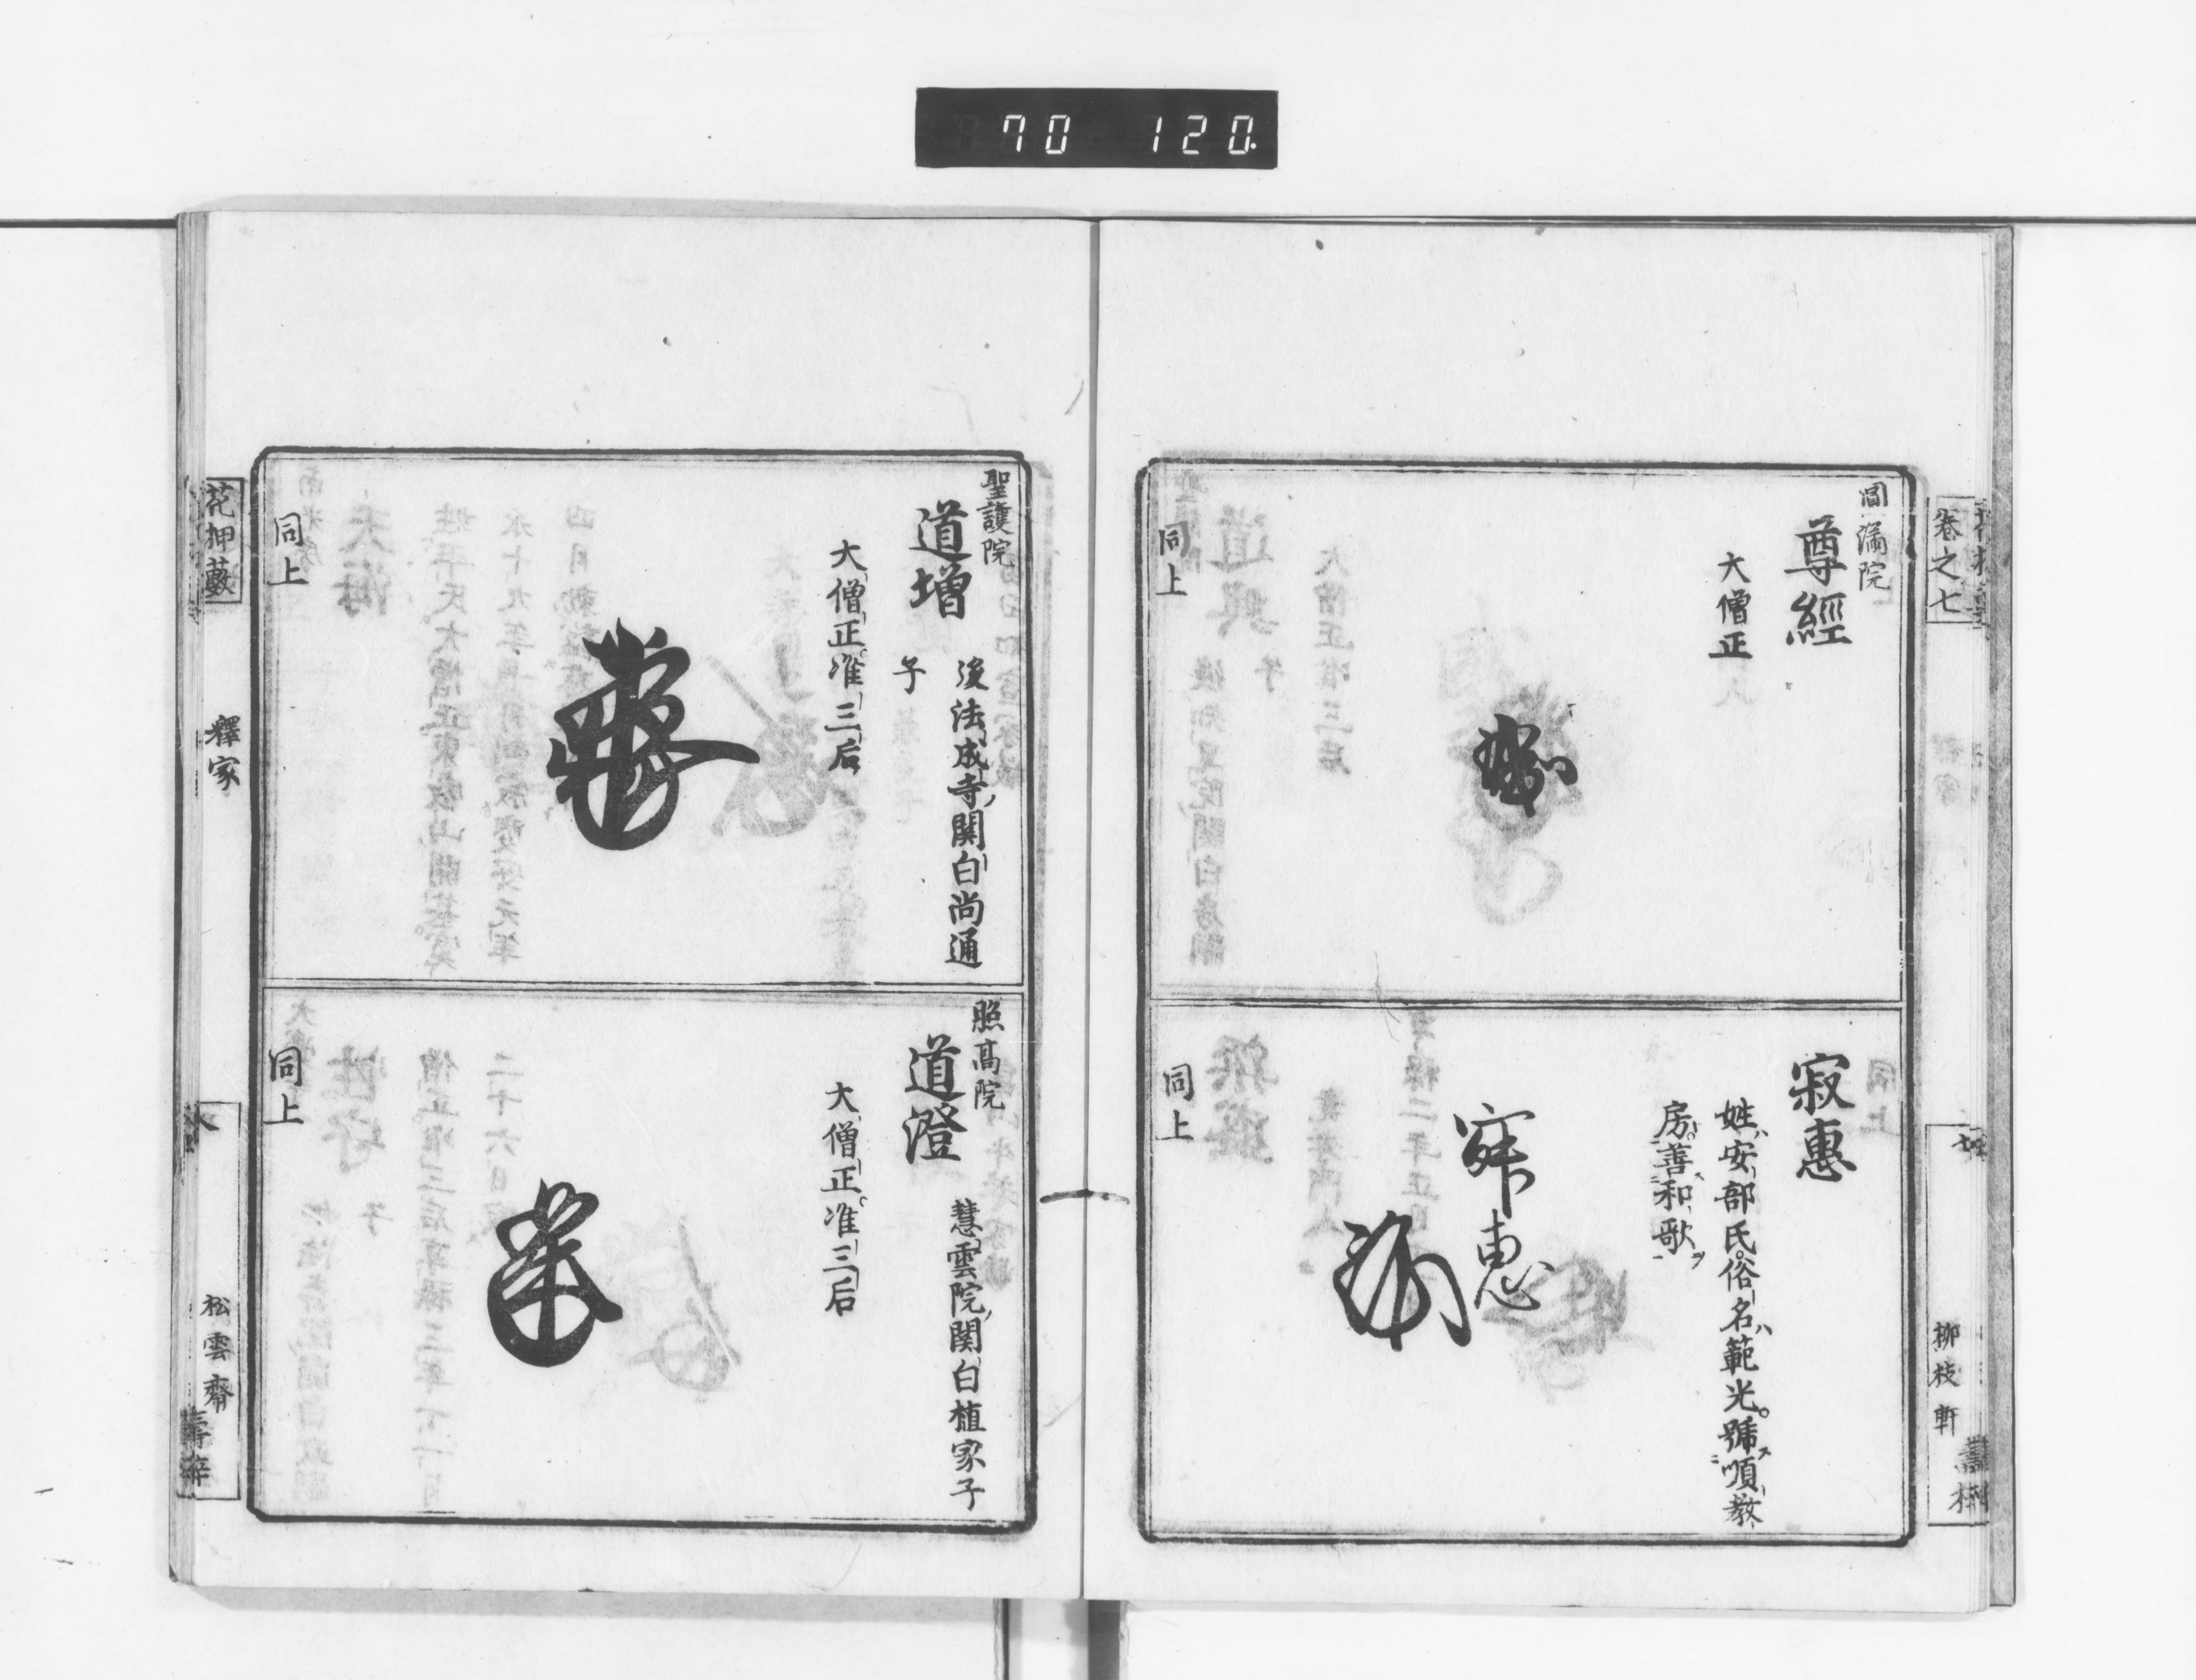 70 120
卷之七
柳枝軒
圓滿院
尊經
大僧正
同上
寂惠
姓ハ安部氏。俗名ハ範光。號ス順教
房。善ス和歌ヲ
寂惠
同上
聖護院
道增
後法成寺關白尚通
子
大僧正准三后
同上
照高院
道澄
慧雲院關白植家子
大僧正。准三后
同上
花押藪
釋家
松雲齋